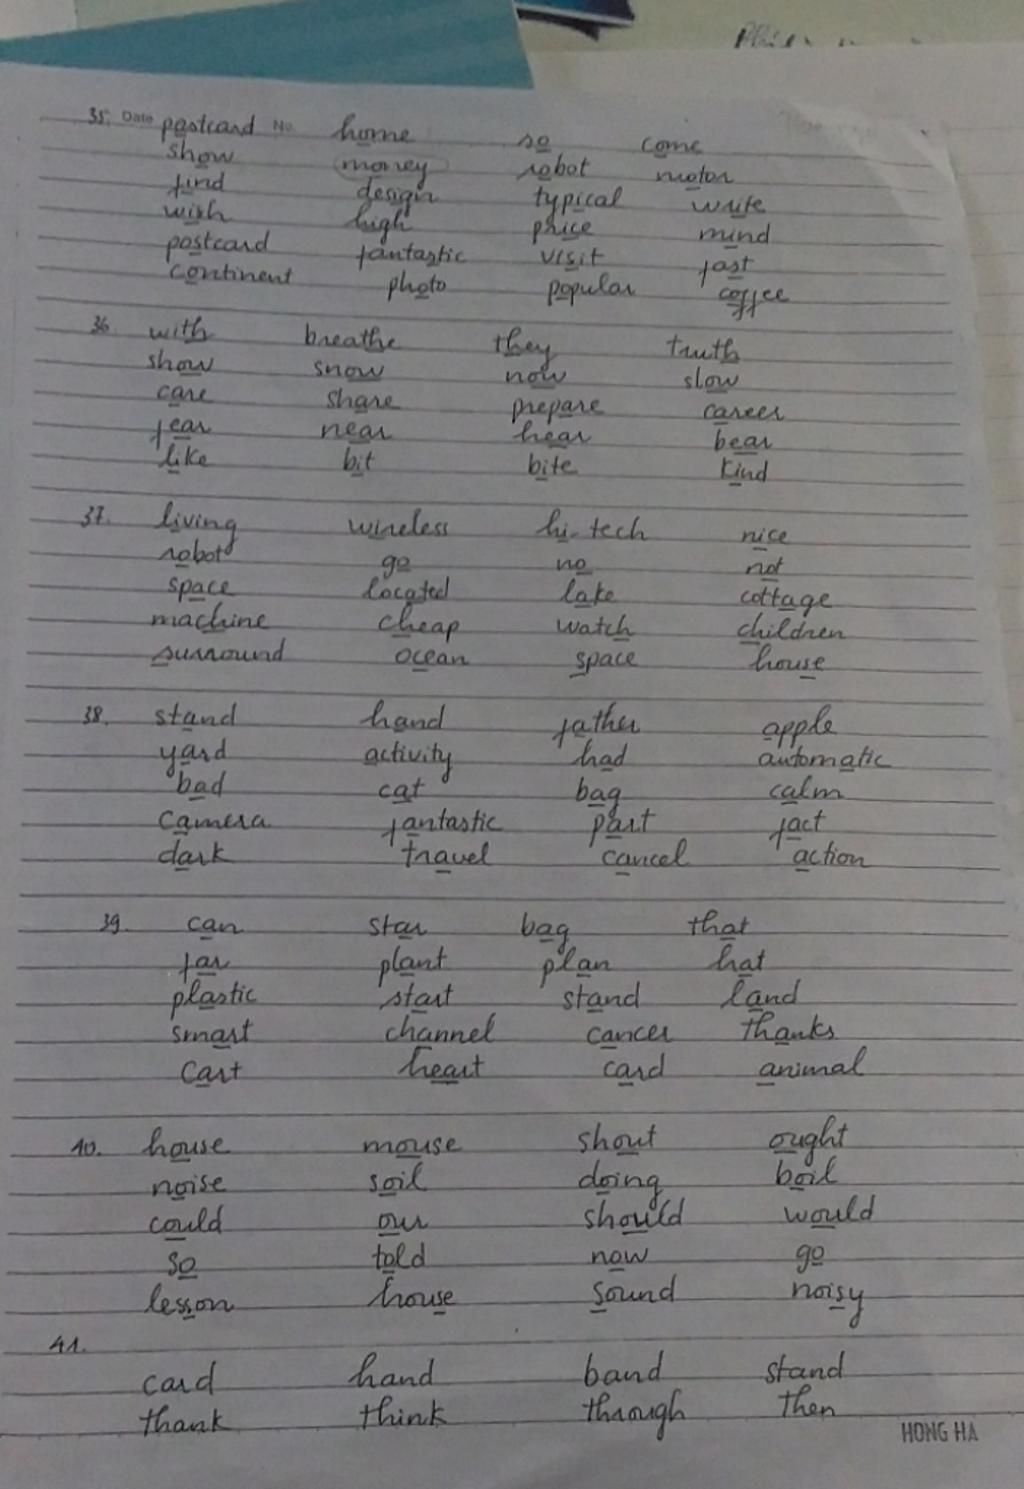 35. Date postcard No. home so come
show money robot motor
find design typical write
wish high price mind
postcard fantastic visit fast
continent photo popular coffee
36. with breathe they truth
show snow now slow
care share prepare career
fear near hear bear
like bit bite kind
37. living wireless hi-tech nice
robot go no not
space located lake cottage
machine cheap watch children
surround ocean space house
38. stand hand father apple
yard activity had automatic
bad cat bag calm
camera fantastic part fact
dark travel cancel action
39. can star bag that
far plant plan hat
plastic start stand land
smart channel cancer thanks
cart heart card animal
40. house mouse shout ought
noise soil doing boil
could our should would
so told now go
lesson house sound noisy
41.
card hand band stand
thank think through then
HONG HA